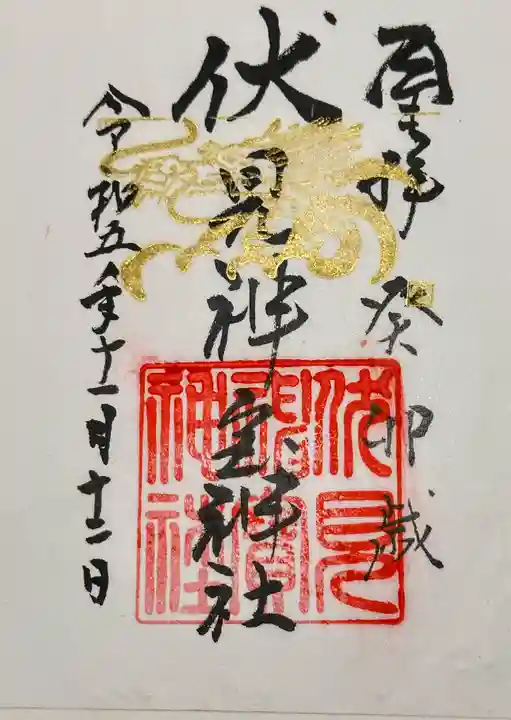 奉拝 癸卯歳
伏見神宝神社
令和五年十一月十二日
伏見
神寳
神社